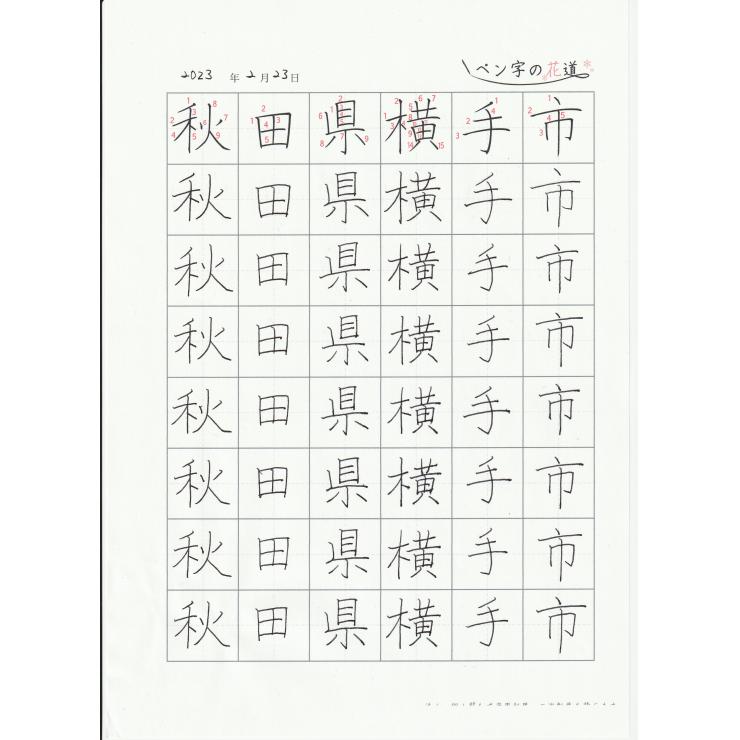 2023 年 2 月 23 日
ペン字の花道
秋田県横手市
秋田県横手市
秋田県横手市
秋田県横手市
秋田県横手市
秋田県横手市
秋田県横手市
秋田県横手市